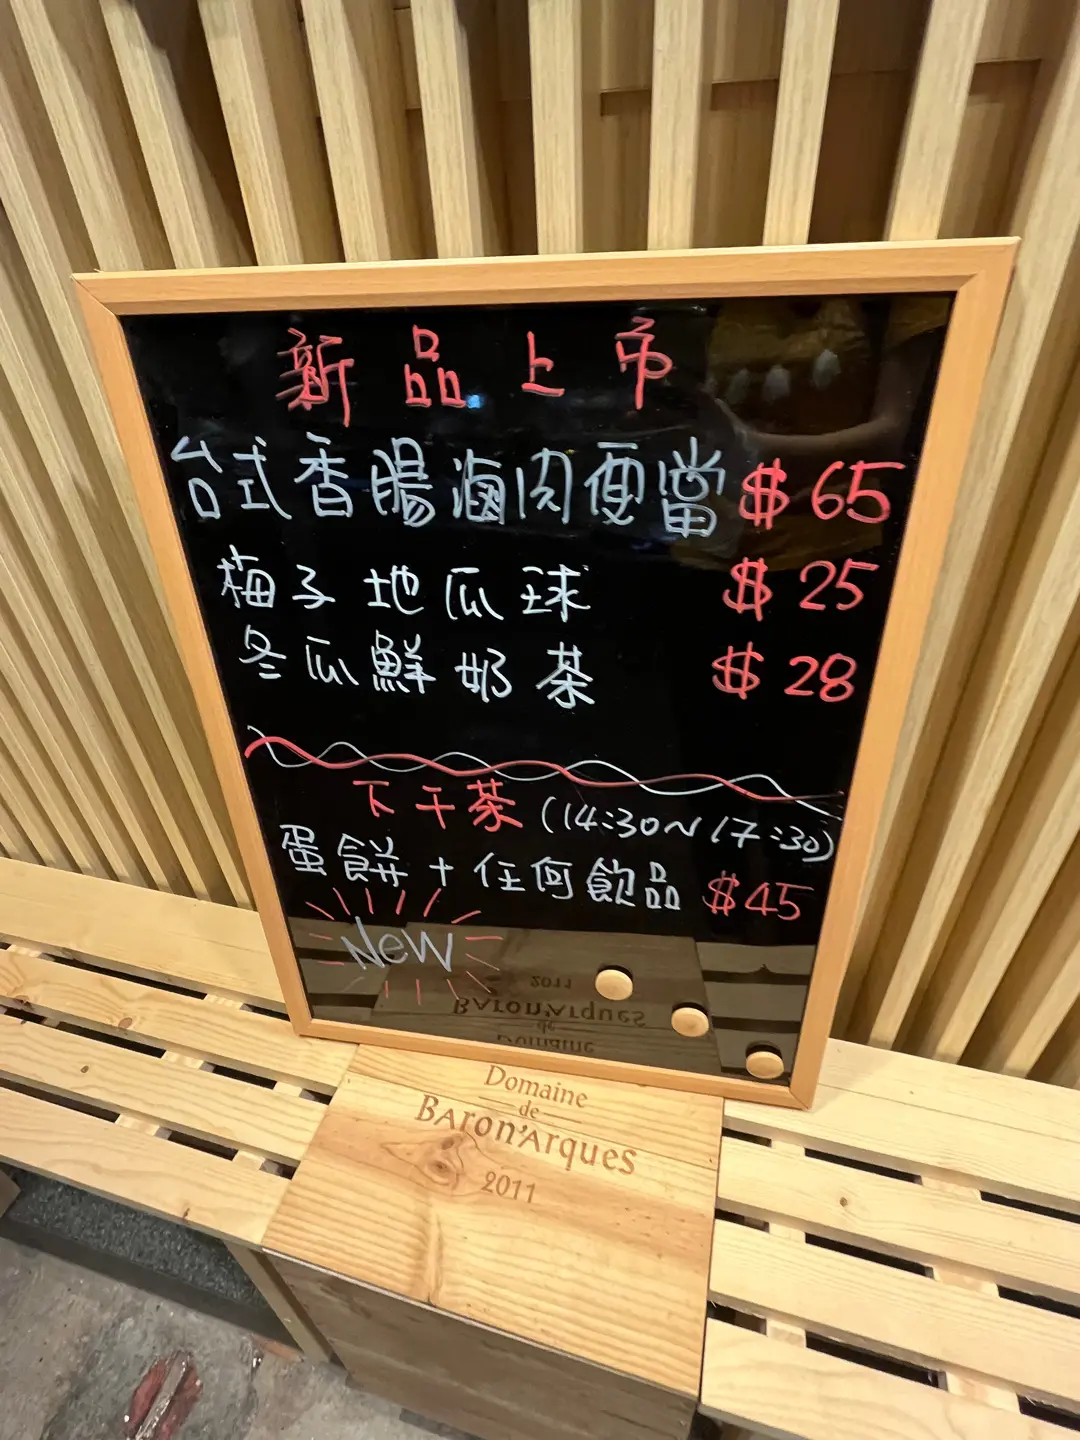 新品上市
台式香腸滷肉便當 $65
梅子地瓜球 $25
冬瓜鮮奶茶 $28
下午茶 (14:30~17:30)
蛋餅+任何飲品 $45
NeW
2011
BARON'ARQUES
de
Domaine
Domaine
de
BARON'ARQUES
2011